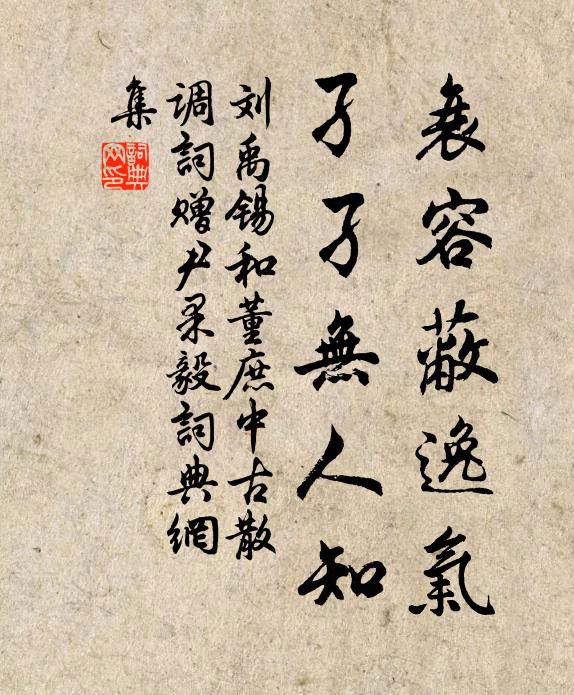 衰容蔽逸氣
孑孑無人知
刘禹锡和董庶中古散
调詞赠尹果毅詞典網
集
詞典
网印